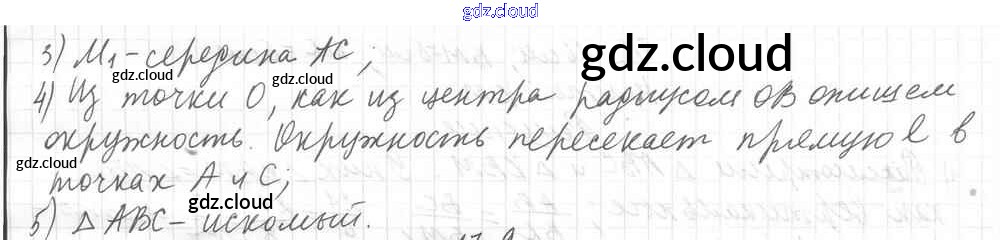 gdz.cloud
3) M₁ - середина AC;
gdz.cloud
gdz.cloud
gdz.cloud
4) Из точки O, как из центра радиусом OB опишем
окружность. Окружность пересекает прямую l в
gdz.cloud
точках A и C;
gdz.cloud
5) △ ABC - искомый.